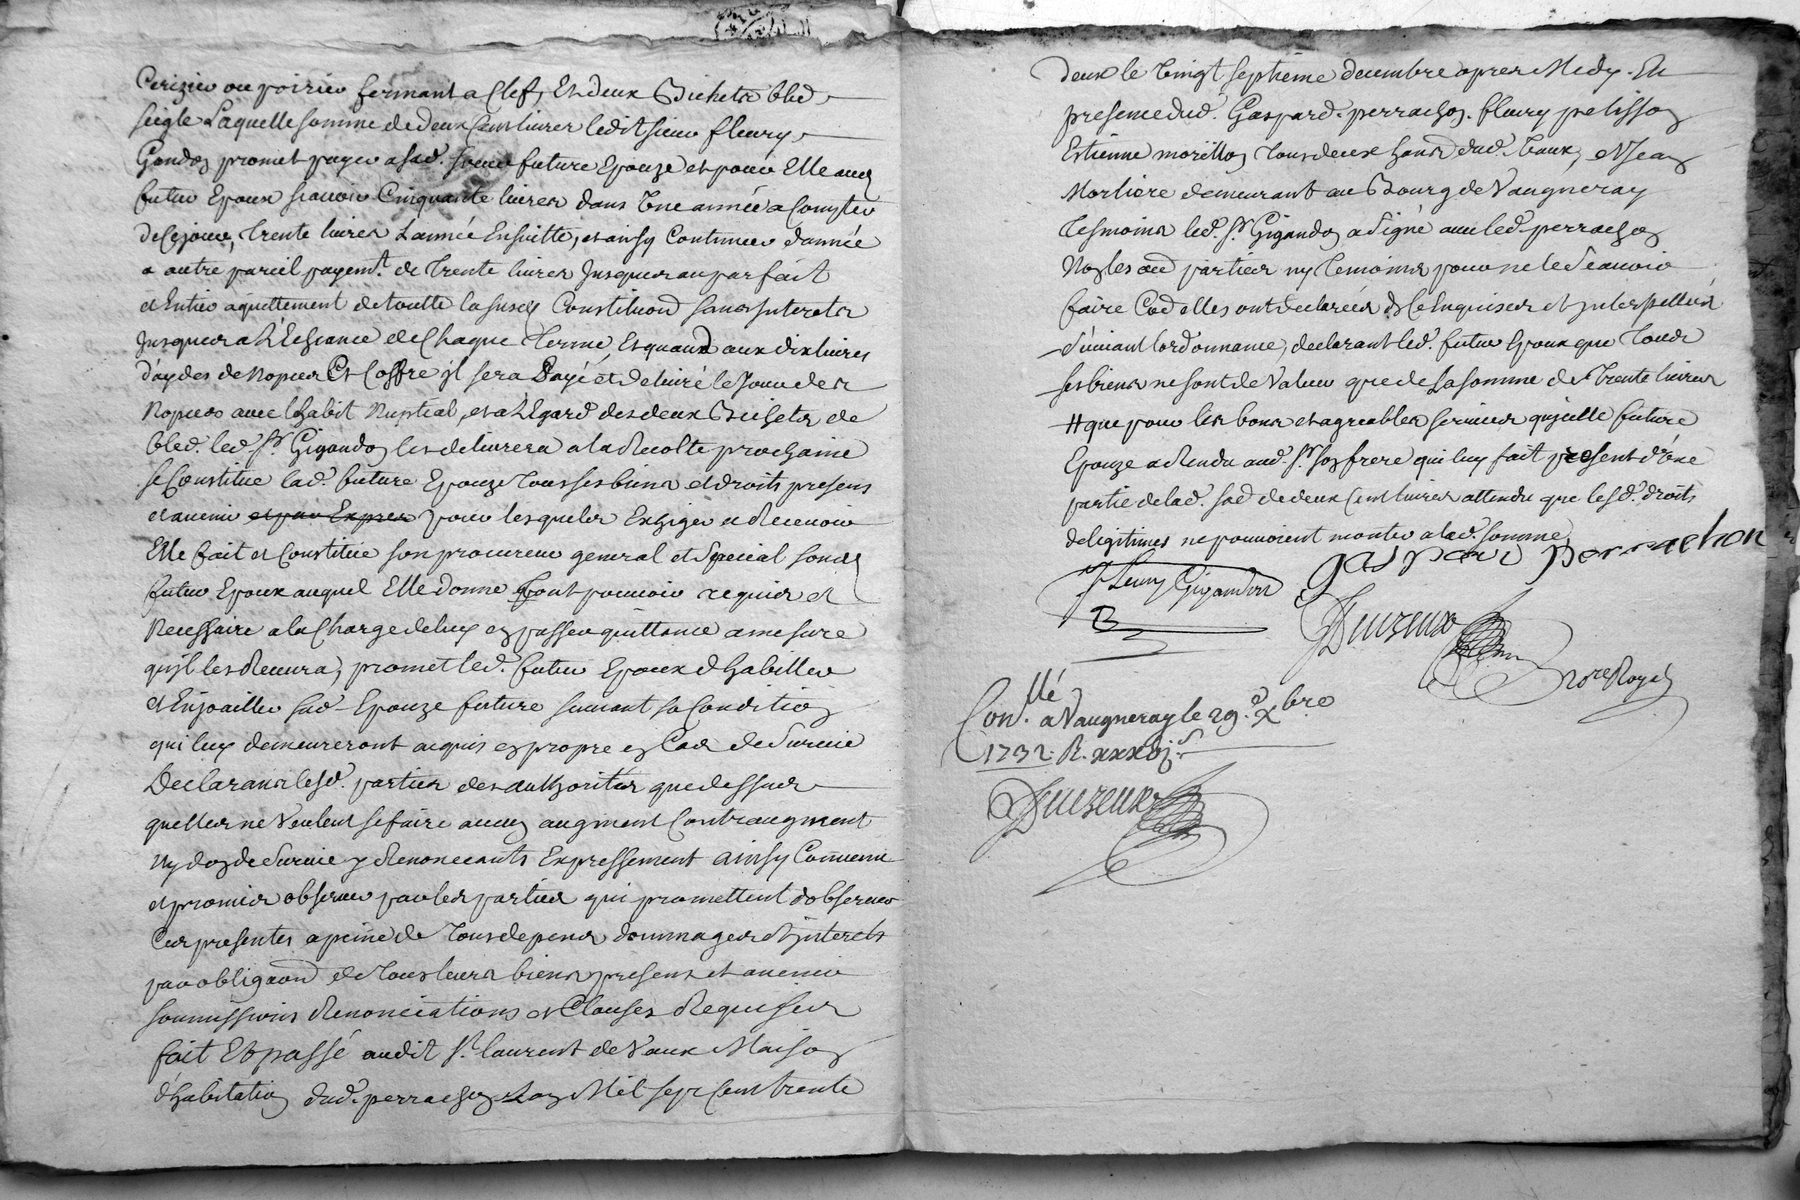 Cerizier ou poirier fermant a Clef, Et deux Bichets bled
seigle Laquelle somme de deux Cent livres ledit sieur fleury
Gigandon promet payer a sad. soeur future Epouze et pour Elle aud
futur Epoux scavoir Cinquante livres dans Une année a Compter
de Cejour, Trente livres Lannée Ensuitte, et ainsy Continuer dannée
a autre pareil payemt. de Trente livres Jusques au parfait
et Entier aquittement de toutte la susd Constituõn sans Interets
Jusques a L'Echeance de Chaque Terme, Et quand aux dix livres
d'aydes de nopces Et Coffre jl sera Payé et delivré le Jour des
Nopces avec lhabit Nuptial, et a L'Egard des deux Bichets de
bled. led. Sr. Gigandon les delivrera a la Recolte prochaine
se Constitue lad. future Epouze Tous ses biens et droits presens
et avenir et pour Exprès pour lesquels Exhiger et Recevoir
Elle fait et Constitue son procureur general et Special sond
futur Epoux auquel Elle donne Tout pouvoir requis et
Necessaire a la Charge deluy en passer quittance amesure
quil les Recevra, promet led. futur Epoux d'habiller
et Enjoailler sad. Epouze future suivant sa Condition
qui luy demeureront acquis en propre en Cas de Survie
Declarans lesd. parties des authorités que dessus
quelles ne Veulent se faire aucun augment Contraugment
Ny don de Survie y Renonceants Expressement ainsy Convenu
et promis observer par les parties qui promettent d'observer
Ces presentes a peine de Tous depens dommages et Interets
par obligaõn de Tous leurs biens presens et avenir
soumissions Renonciations et Clauses Requises
fait Et passé audit St. laurent de Vaux Maison
d'habitation dud. perrachon Lan Mil sept Cent trente
deux le Vingt septieme decembre apres Midy. En
presence dud. Gaspard. perrachon. fleury pelisson
Estienne morillon Tous deux hans dud. Vaux, et Jean
Morliere demeurant au Bourg de Vaugneray
Tesmoins led. Sr. Gigandon a Signé avec led. perrachon
Non les aud parties ny Temoins pour ne le Scavoir
faire Cõe elles ont declarées de Ce Enquises et Interpellées
Suivant lordonnance, declarant led. futur Epoux que Tous
ses biens ne sont de Valeur que de La somme de Trente livres
# que pour les bons et agreables services qu'jcelle future
Epouze a Rendu aud. Sr. son frere qui luy fait present d'Une
partie de lad. sõe de deux Cent livres attendu que lesd. droits
de legitimes ne pouvoient monter a lad. somme
Gaspard Perrachon
Fleury Gigandon
Duvzeux
nore Royal
Conllé. a Vaugneray le 29.e Xbre
1732. R. xxxvj. s
Duvzeux